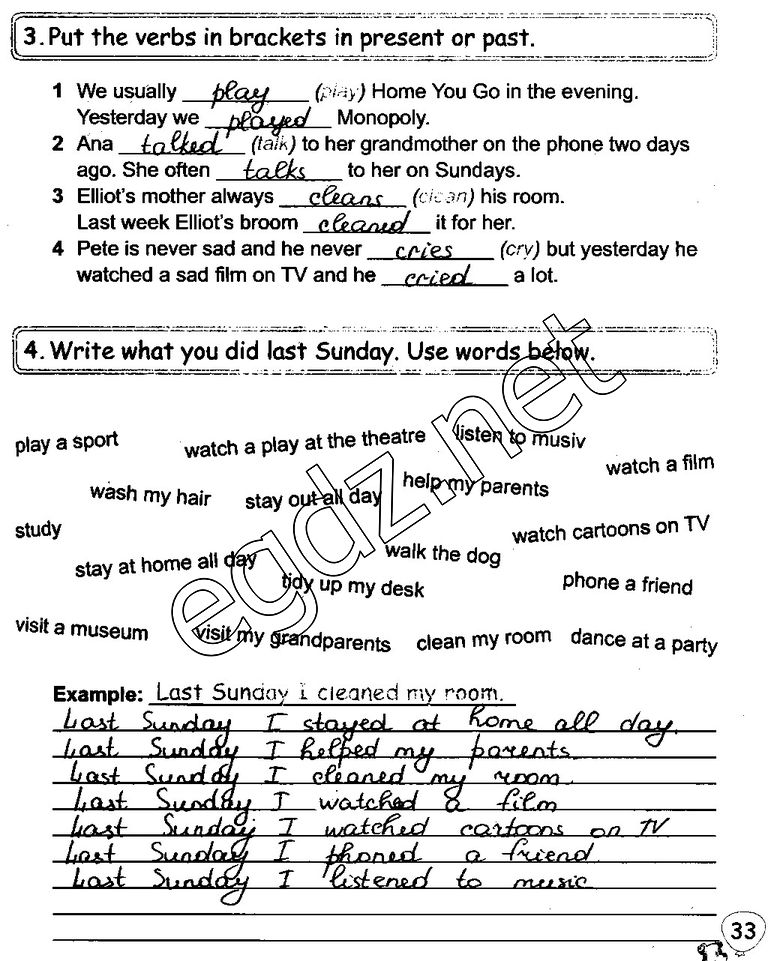 3. Put the verbs in brackets in present or past.
1 We usually play (play) Home You Go in the evening.
Yesterday we played Monopoly.
2 Ana talked (talk) to her grandmother on the phone two days
ago. She often talks to her on Sundays.
3 Elliot's mother always cleans (clean) his room.
Last week Elliot's broom cleaned it for her.
4 Pete is never sad and he never cries (cry) but yesterday he
watched a sad film on TV and he cried a lot.
4. Write what you did last Sunday. Use words below.
play a sport
watch a play at the theatre
listen to musiv
watch a film
wash my hair
stay out all day
help my parents
study
watch cartoons on TV
stay at home all day
walk the dog
tidy up my desk
phone a friend
visit a museum
visit my grandparents
clean my room
dance at a party
egdz.net
Example: Last Sunday I cleaned my room.
Last Sunday I stayed at home all day.
Last Sunday I helped my parents
Last Sunday I cleaned my room
Last Sunday I watched a film
Last Sunday I watched cartoons on TV
Last Sunday I phoned a friend
Last Sunday I listened to music
33